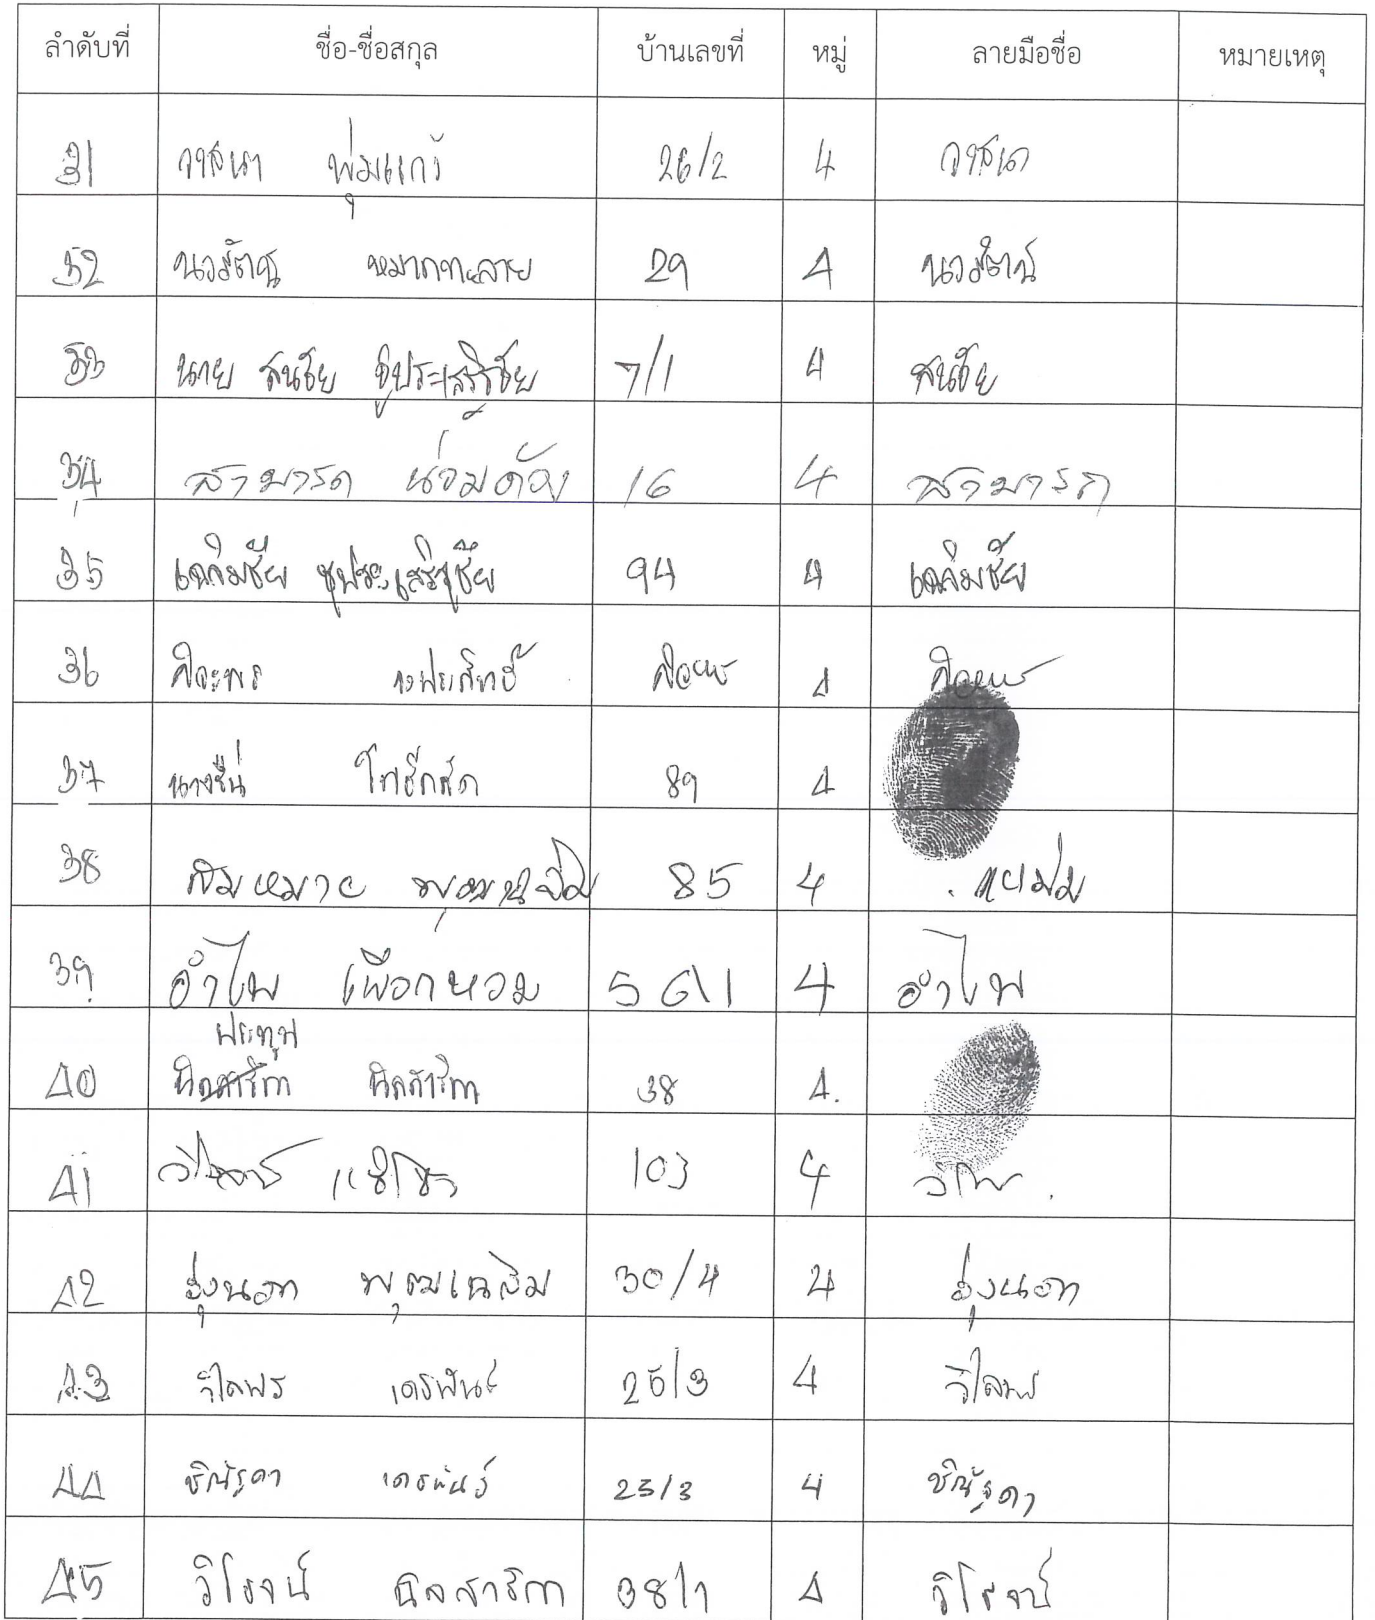 ลำดับที่ ชื่อ-ชื่อสกุล บ้านเลขที่ หมู่ ลายมือชื่อ หมายเหตุ
31 วาสนา พุ่มแก้ว 26/2 4 วาสนา
32 นวรัตน์ 29 4 นวรัตน์
33 นาย สนชัย ชูประเสริฐชัย 7/1 4 สนชัย
34 สามารถ น่วมด้วง 16 4 สามารถ
35 เฉลิมชัย ชูประเสริฐชัย 94 4 เฉลิมชัย
36 4
37 นางชื่น 89 4
38 สมหมาย 85 4
39 อำไพ เผือกหอม 56/1 4 อำไพ
ประทุม
40 นิลสาริกา 38 4.
41 103 4
42 รุ่งนภา พุฒเฉลิม 30/4 4 รุ่งนภา
43 วิไลพร เดชพันธ์ 25/3 4 วิไลพร
44 เดชพันธ์ 25/3 4
45 วิโรจน์ นิลสาริกา 38/1 4 วิโรจน์